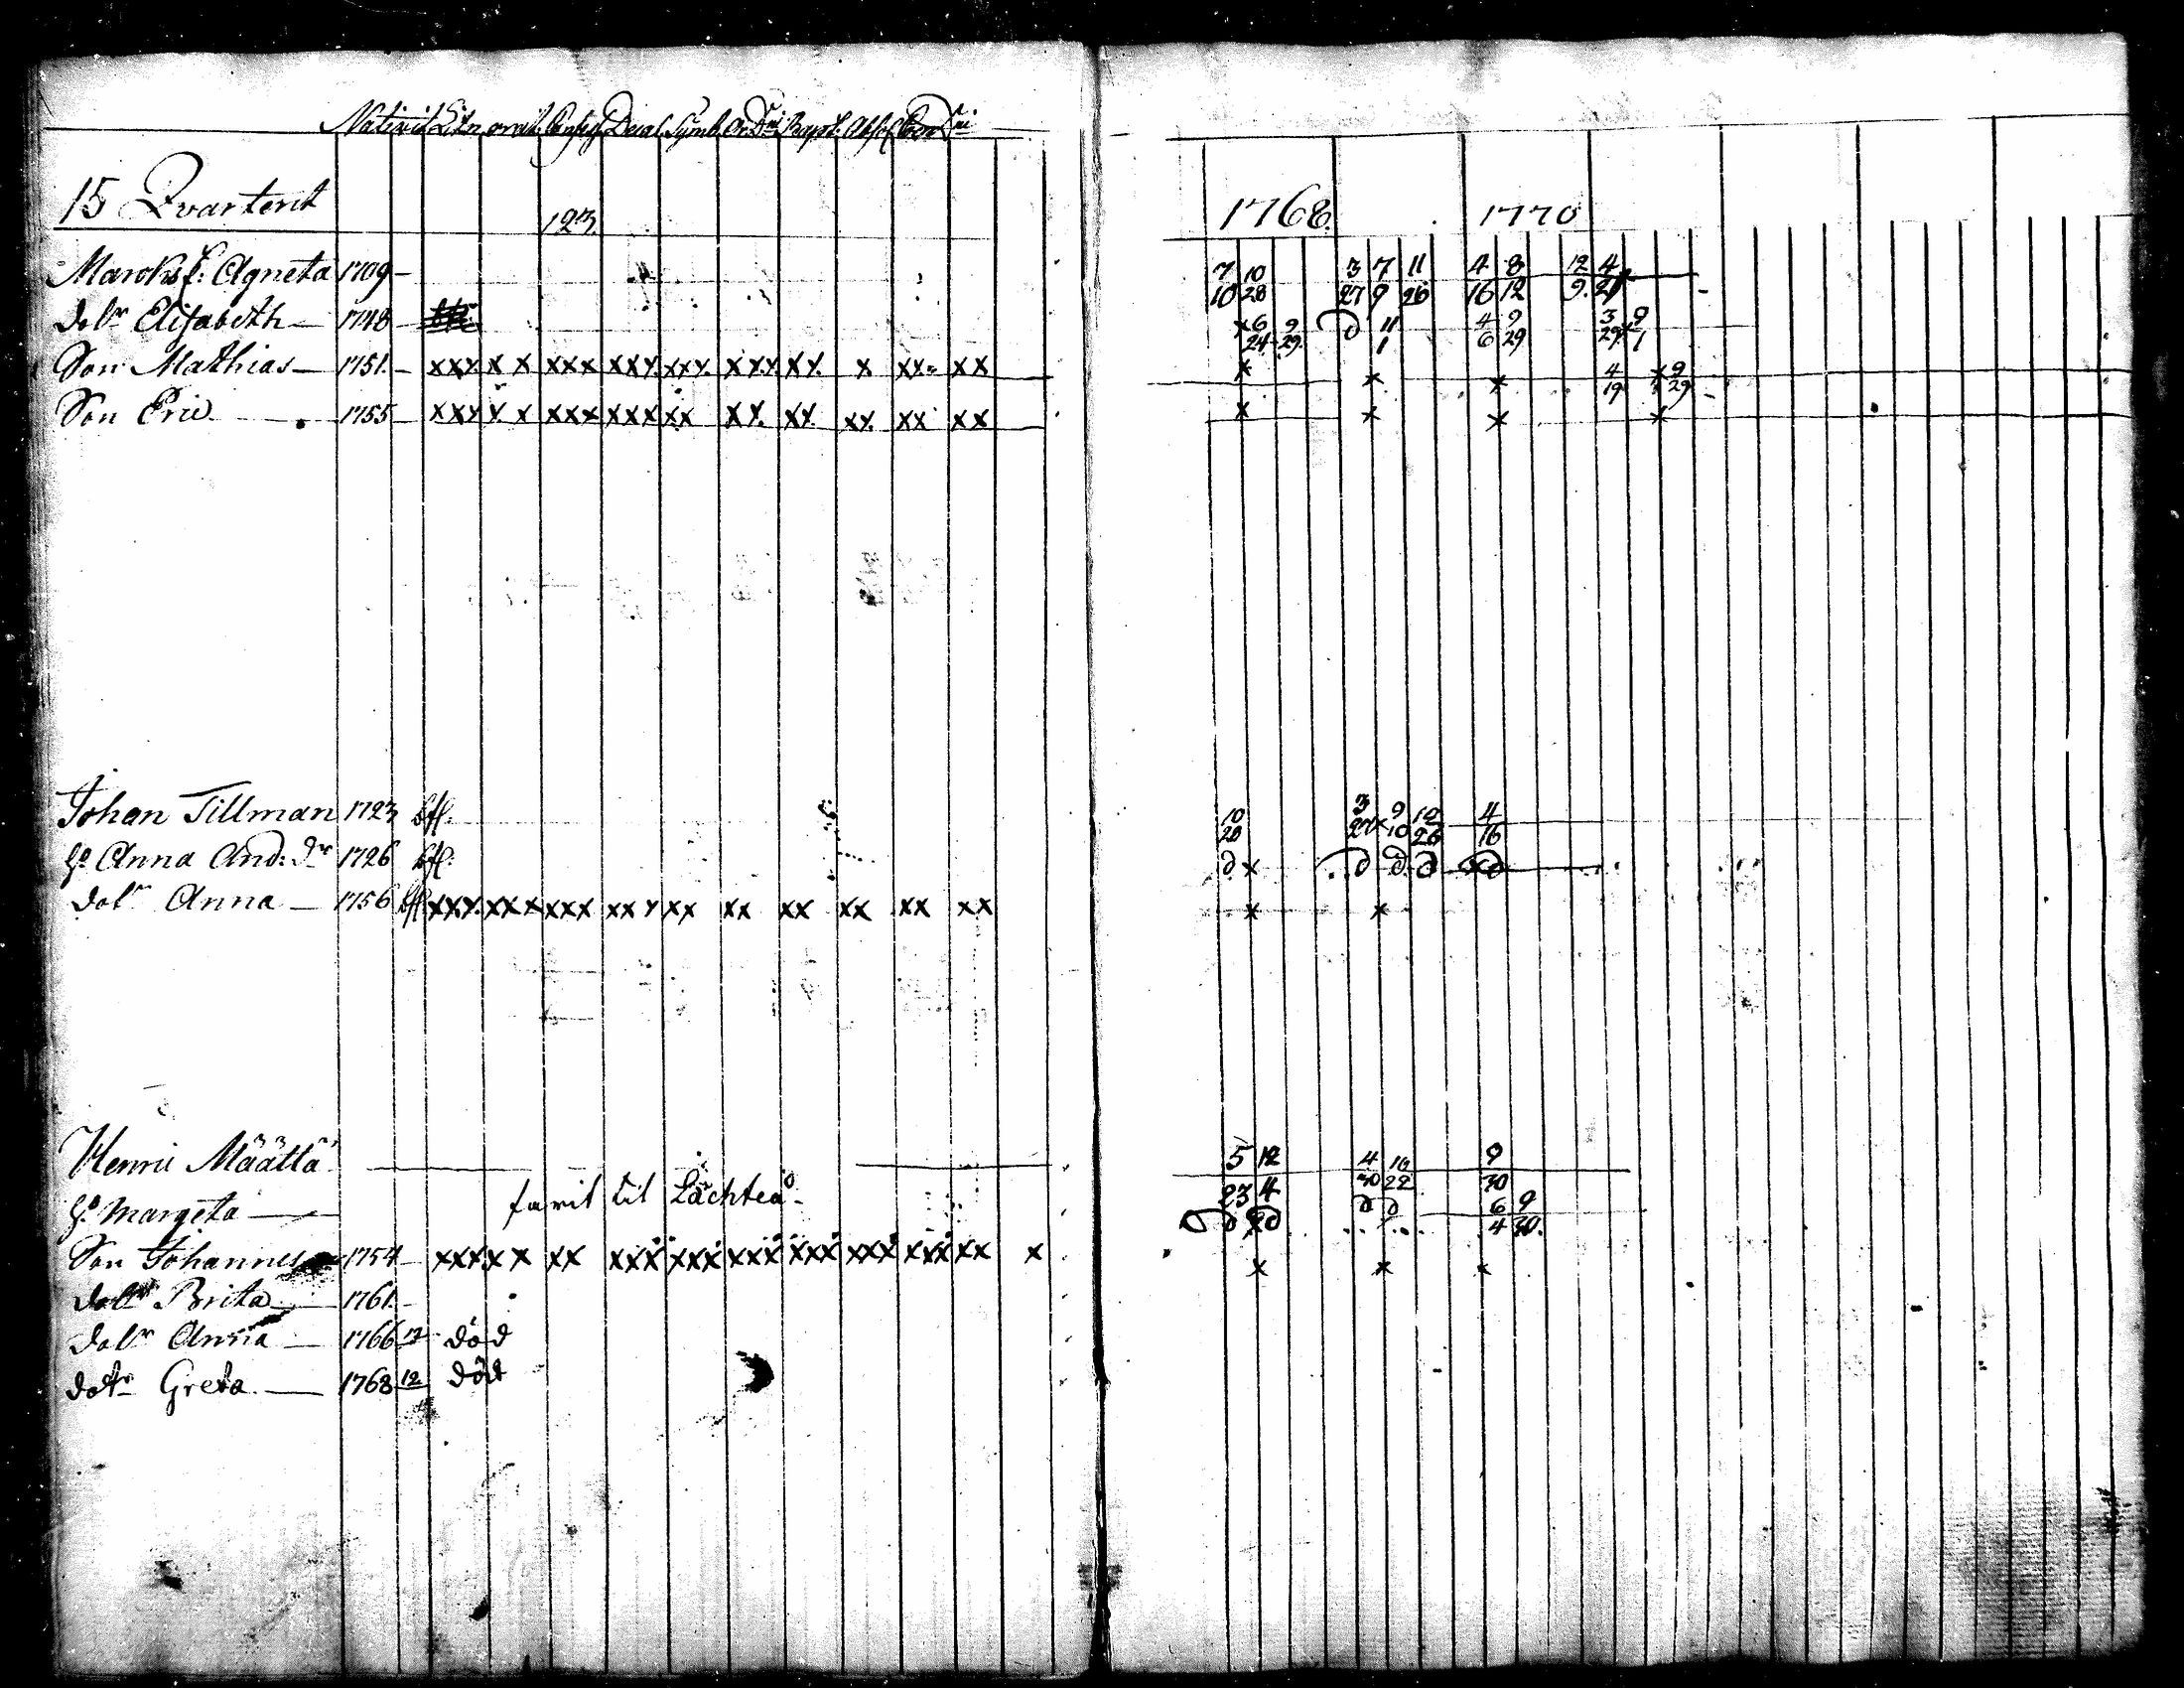 Nativit. Litn. orat. Decal. Symb. Or. Dni Bapt. Absol.
15 Qvarterit 123. 1768. 1770
Marcks E: Agneta 1709 – 7/10 10/28 3/27 7/9 11/26 4/16 8/12 12/9. 4/21
dotr Elisabeth – 1748 – x 6/24 9/29. d 11/1 4/6 9/29 3/29 x 9/1
Son Mathias – 1751. – xxx x x xxx xxx xxx xxx xx. x xx. xx x x x 4/19 x 9/29
Son Eric – 1755 – xxx x x xxx xxx xx xx. xx. xx. xx xx x x x x
Johan Tillman 1723 bfl. 10/28 3/27 x 9/10 12/26 4/16
H. Anna And: dr 1726 bfl. d x d d d x d
dotr Anna – 1756 bfl xxx. xxx xxx xxx xx xx xx xx xx xx x x
Henric Määttä 5/23 12/4 4/30 10/22 9/30
H. Margeta – farit til Lachteå – d x d d d 6/4 9/30.
Son Johannes 1754 – xxx x x xx xxx xxx xxx xxx xxx xxx xx x x x x
dotr Brita – 1761. –
dotr Anna – 1766 12 död
dotr Greta – 1768 12 död